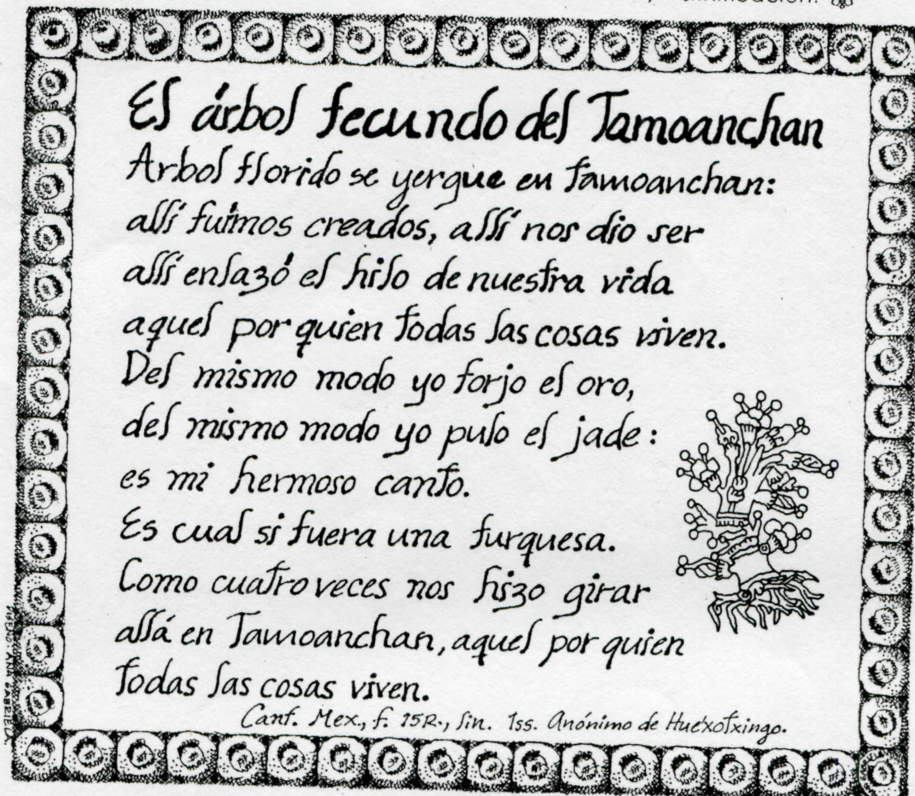 El árbol fecundo del Tamoanchan
Arbol florido se yergue en Tamoanchan:
allí fuimos creados, allí nos dio ser
allí enlazó el hilo de nuestra vida
aquel por quien todas las cosas viven.
Del mismo modo yo forjo el oro,
del mismo modo yo pulo el jade:
es mi hermoso canto.
Es cual si fuera una turquesa.
Como cuatro veces nos hizo girar
allá en Tamoanchan, aquel por quien
todas las cosas viven.
Cant. Mex., f. 15R., lin. 1ss. Anónimo de Huexotxingo.